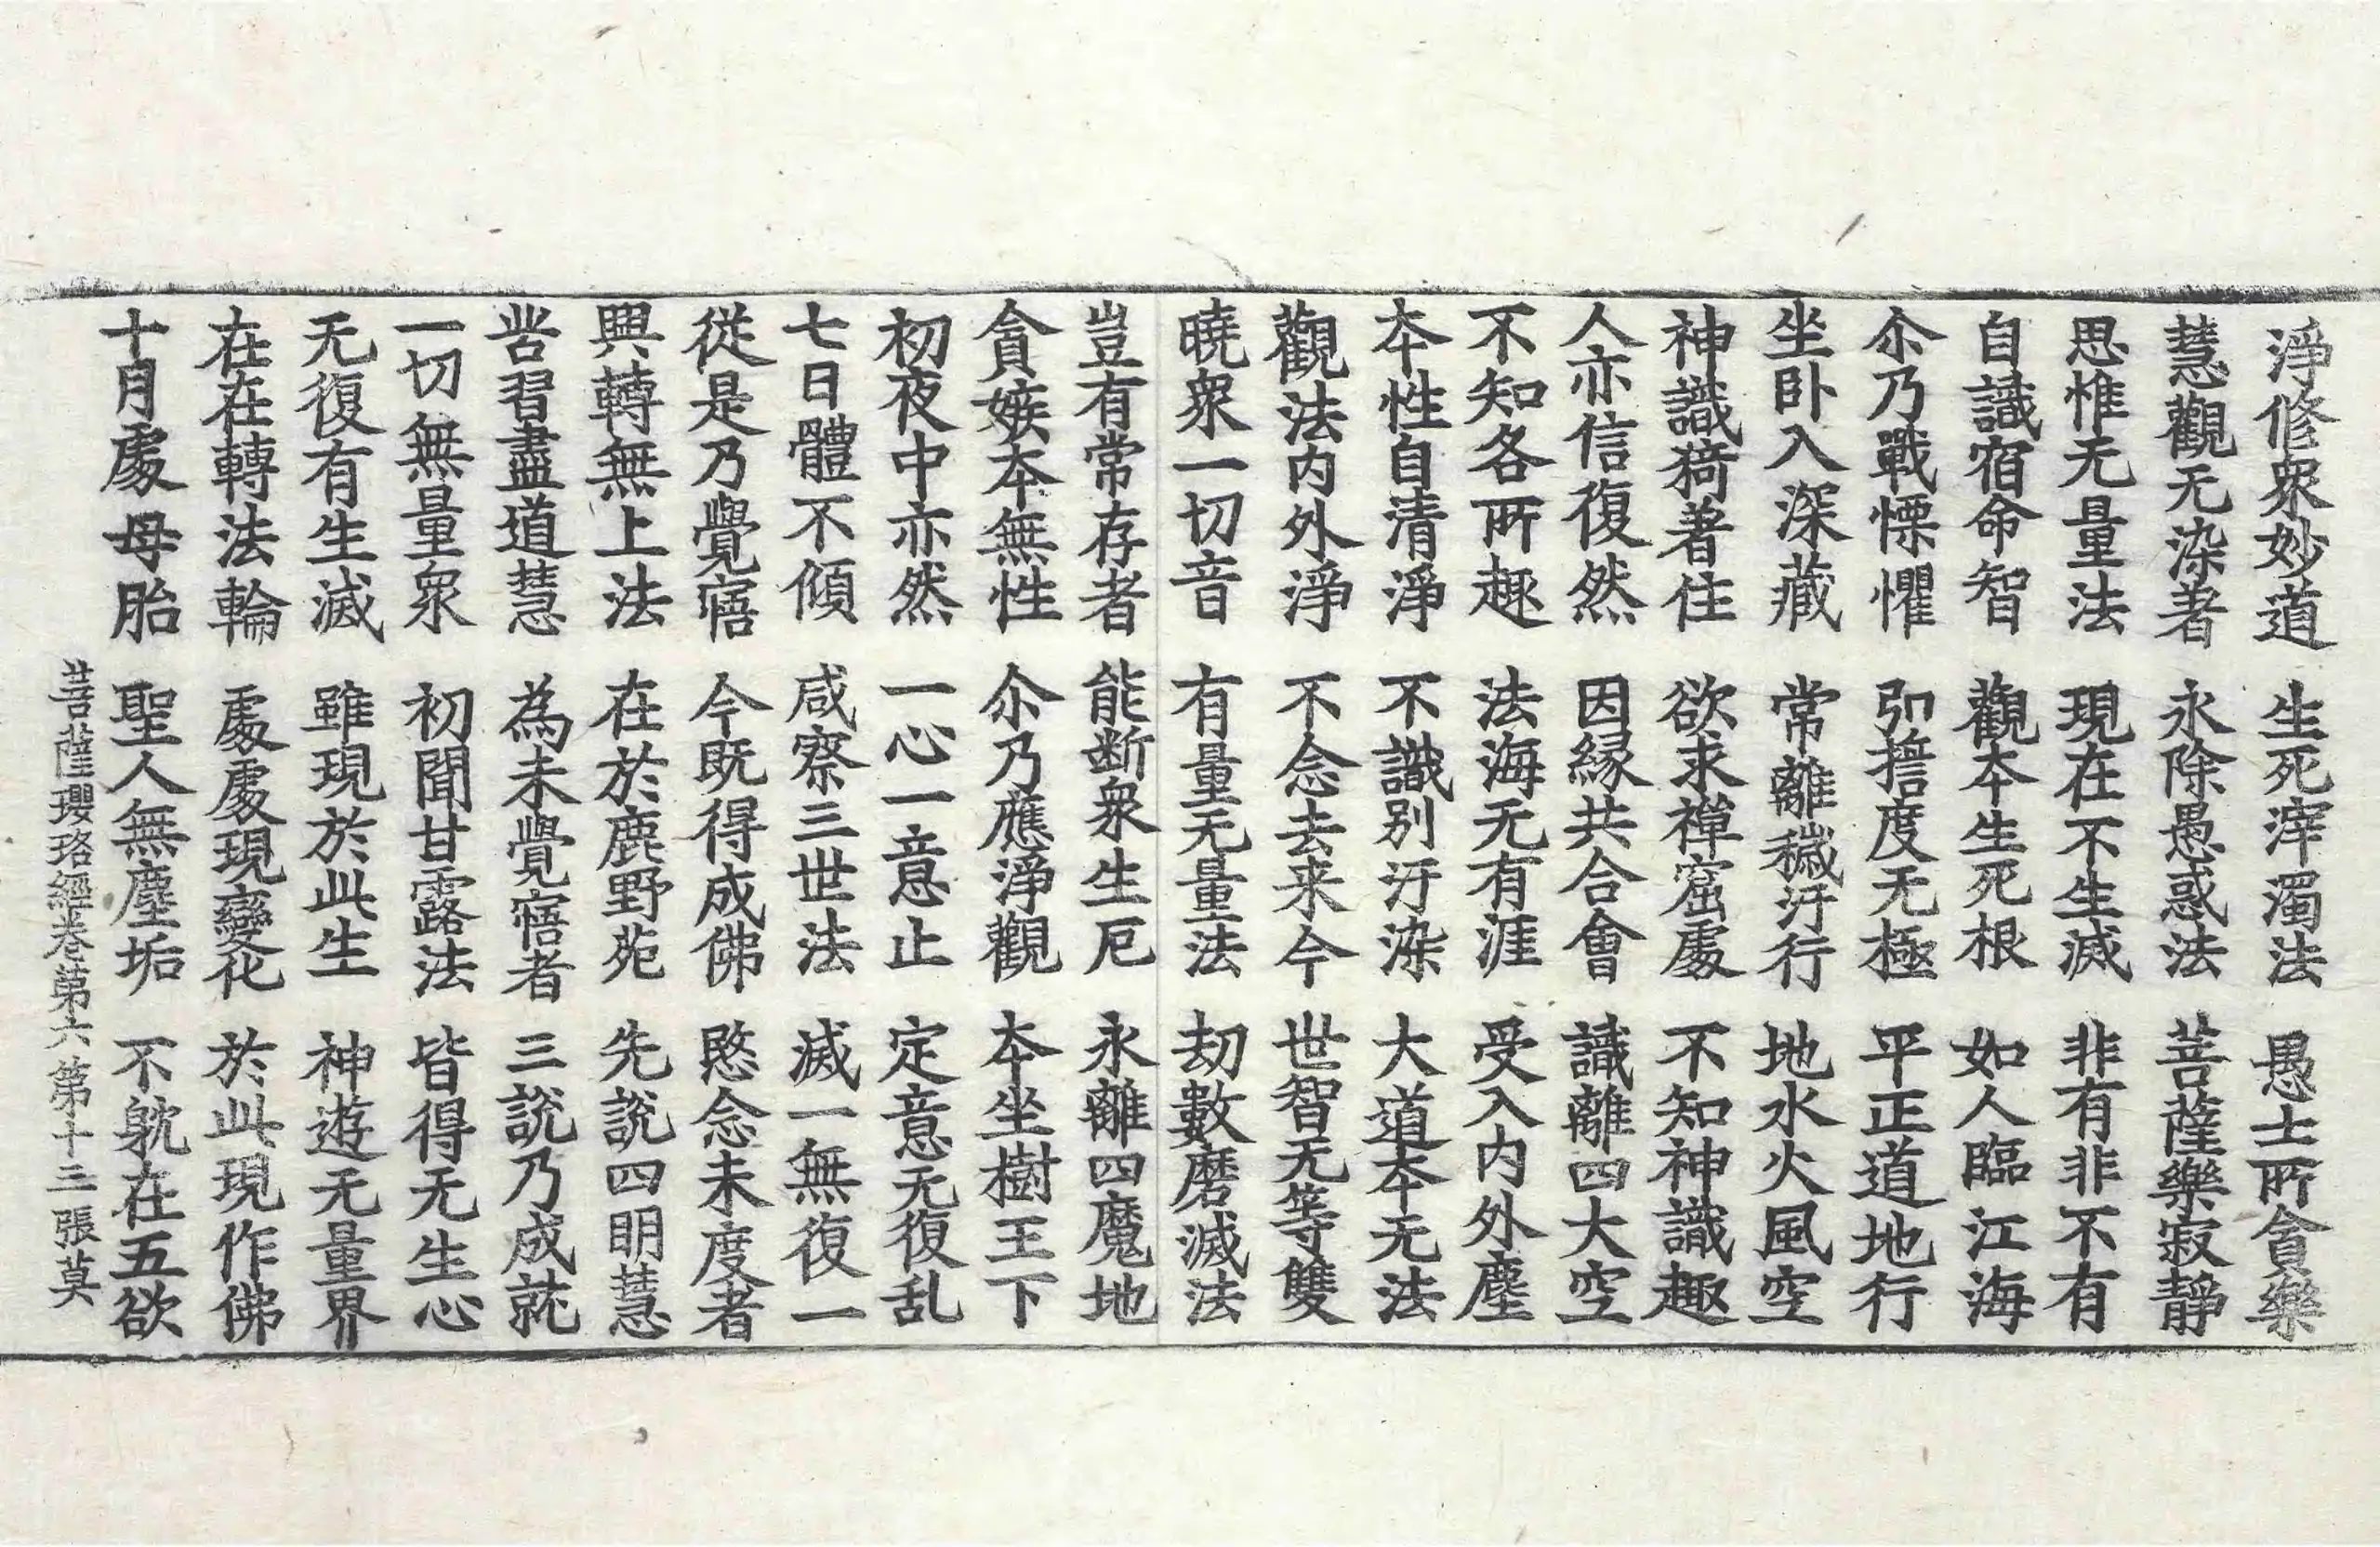 淨修衆妙道 生死滓濁法 愚士所貪樂
慧觀无染著 永除愚惑法 菩薩樂寂靜
思惟无量法 現在不生滅 非有非不有
自識宿命智 觀本生死根 如人臨江海
尒乃戰慄懼 弘誓度无極 平正道地行
坐卧入深藏 常離穢汙行 地水火風空
神識猗著住 欲求禪窟處 不知神識趣
人亦信復然 因縁共合會 識離四大空
不知各所趣 法海无有涯 受入内外塵
本性自清淨 不識別汙染 大道本无法
觀法内外淨 不念去来今 世智无等雙
曉衆一切音 有量无量法 劫數磨滅法
豈有常存者 能断衆生厄 永離四魔地
貪嫉本無性 尒乃應淨觀 本坐樹王下
初夜中亦然 一心一意止 定意无復乱
七日體不傾 咸察三世法 滅一無復一
從是乃覺寤 今既得成佛 愍念未度者
興轉無上法 在於鹿野苑 先說四明慧
甞習盡道慧 為未覺寤者 三說乃成就
一切無量衆 初聞甘露法 皆得无生心
无復有生滅 雖現於此生 神遊无量界
在在轉法輪 處處現變化 於此現作佛
十月處母胎 聖人無塵垢 不躭在五欲
菩薩瓔珞經卷第六 第十三張 莫